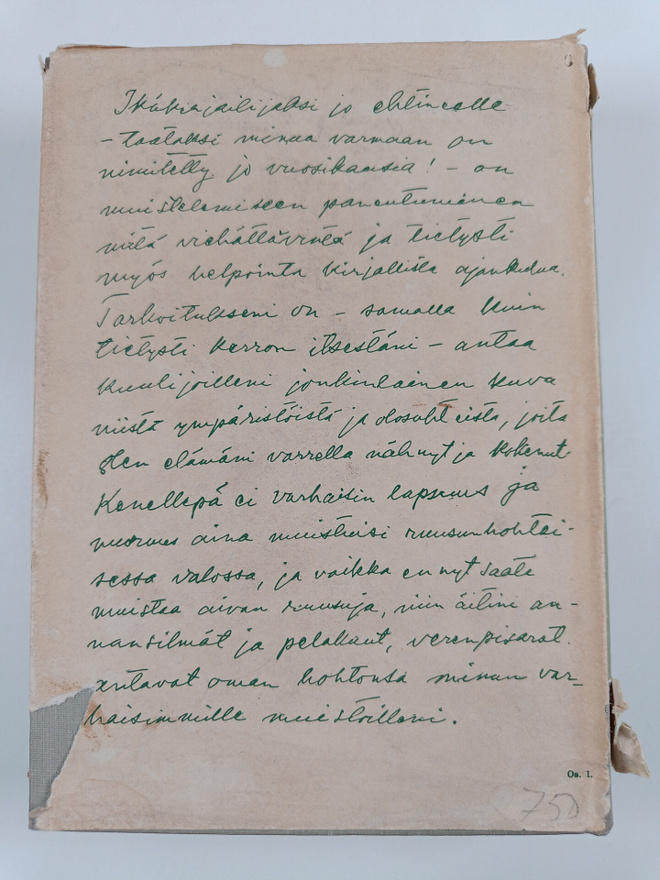 Ikäkirjailijaksi jo ehtineelle
- taataksi minua varmaan on
nimitetty jo vuosikausia! - on
muistelemiseen paneutuminen
mitä viehättävintä ja tietysti
myös helpointa kirjallista ajankulua.
Tarkoitukseni on - samalla kuin
tietysti kerron itsestäni - antaa
kuulijoilleni jonkinlainen kuva
niistä ympäristöistä ja olosuhteista, joita
olen elämäni varrella nähnyt ja kokenut
Kenellepä ei varhaisin lapsuus ja
nuoruus aina muistuisi ruusunhohtei-
sessa valossa, ja vaikka en nyt saata
muistaa aivan ruusuja, niin äitini an-
nansilmät ja pelakuut, verenpisarat
antavat oman hohtonsa minun var-
haisimmille muistoilleni.
Os. 1.
750